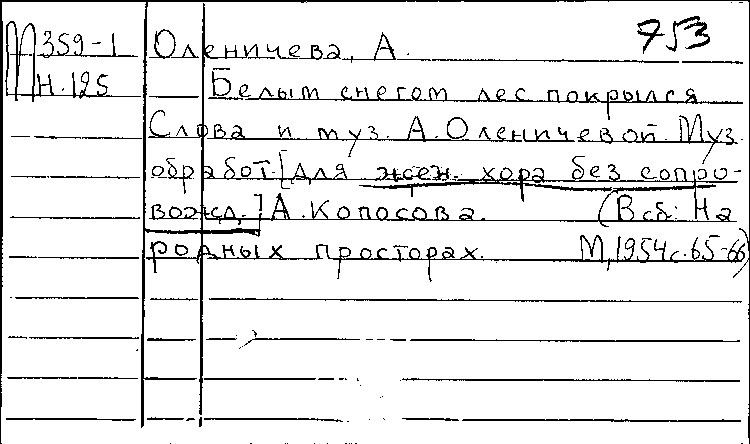 М359-1 Оленичева, А. 753
Н.125 Белым снегом лес покрылся
Слова и муз. А. Оленичевой. Муз.
обработ. [для жен. хора без сопро-
вожд.] А. Копосова. (В сб: На
родных просторах. М, 1954 с. 65-66)